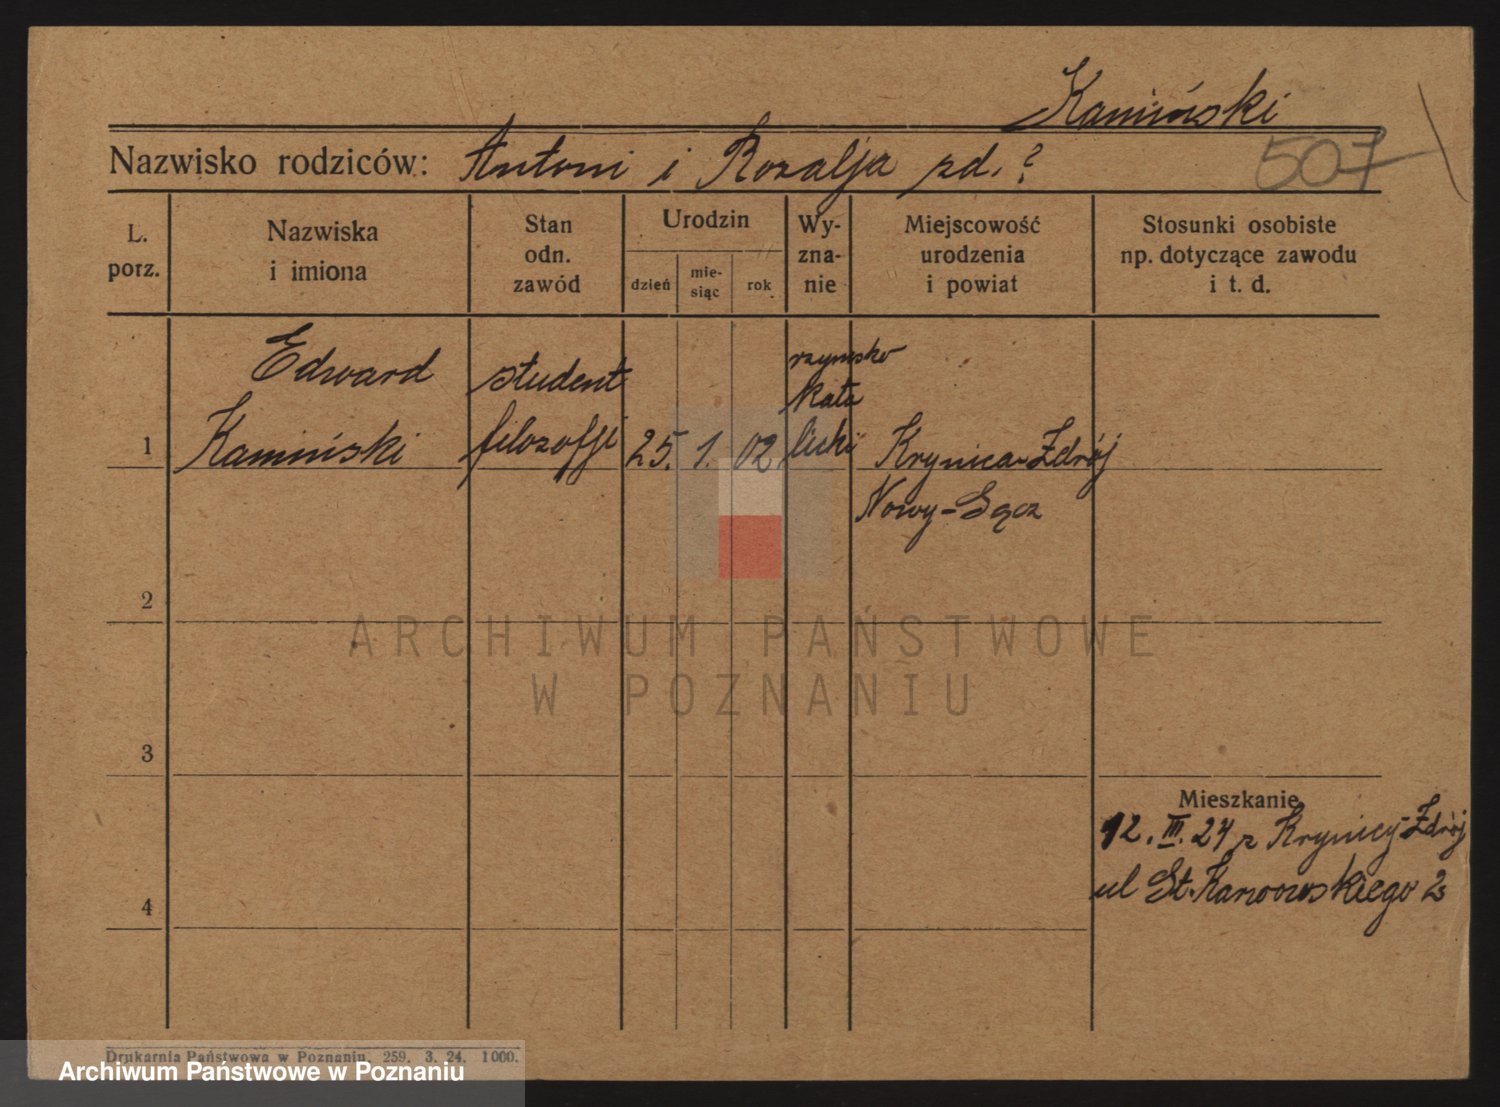 Kamiński
507
Nazwisko rodziców: Antoni i Rozalja zd. ?
L. porz.
Nazwiska i imiona
Stan odn. zawód
Urodzin
dzień
mie-
siąc
rok
Wy-
zna-
nie
Miejscowość
urodzenia
i powiat
Stosunki osobiste
np. dotyczące zawodu
i t. d.
Edward
Kamiński
student
filozofji
1
25. 1. 02
rzymsko
kato
licki
Krynica-Zdrój
Nowy-Sącz
2
3
4
Mieszkanie
12. III. 24 z Krynicy-Zdrój
ul St.
2
ARCHIWUM PAŃSTWOWE
W POZNANIU
Drukarnia Państwowa w Poznaniu. 259. 3. 24. 1000.
Archiwum Państwowe w Poznaniu